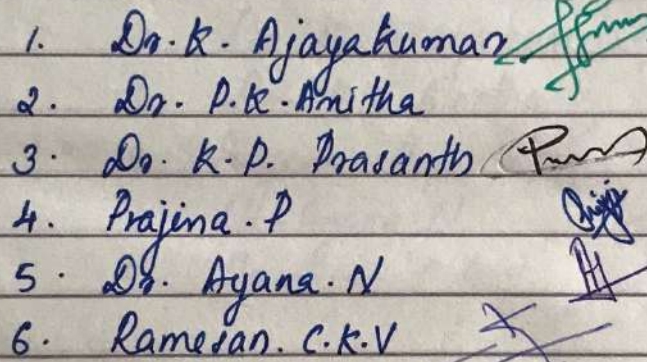 1. Dr. K. Ajayakumar
2. Dr. P.K. Anitha
3. Dr. K.P. Prasanth
4. Prajina. P
5. Dr. Ayana. N
6. Ramesan. C.K.V